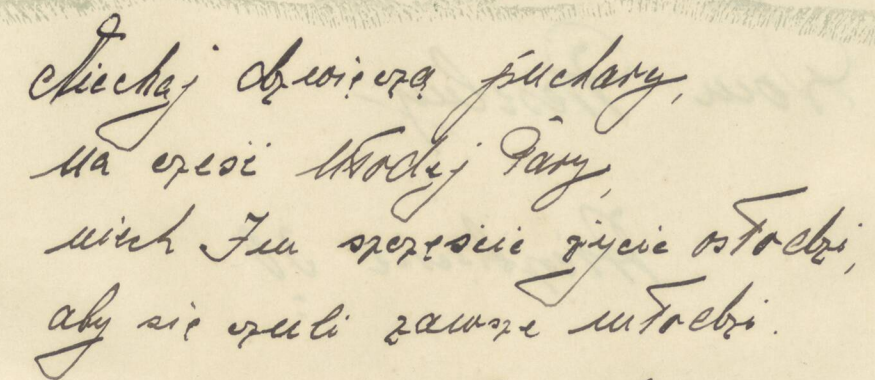 Niechaj dźwięczą puchary,
na cześć Młodej Pary,
niech Im szczęście życie osłodzi,
aby się czuli zawsze młodzi.